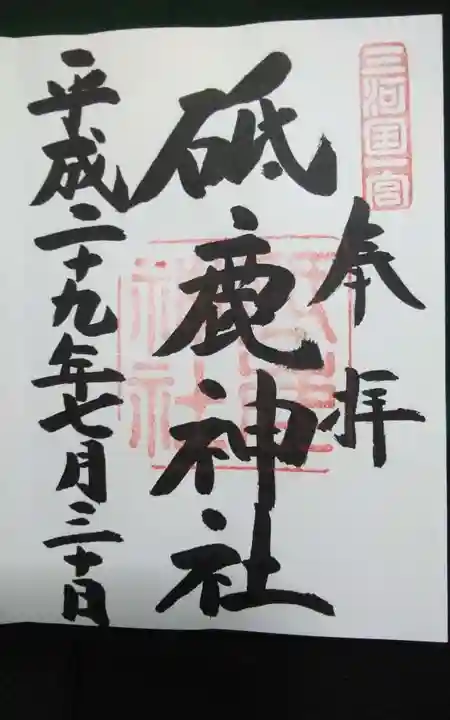 三河国一宮
奉拝
砥鹿神社
平成二十九年七月三十日